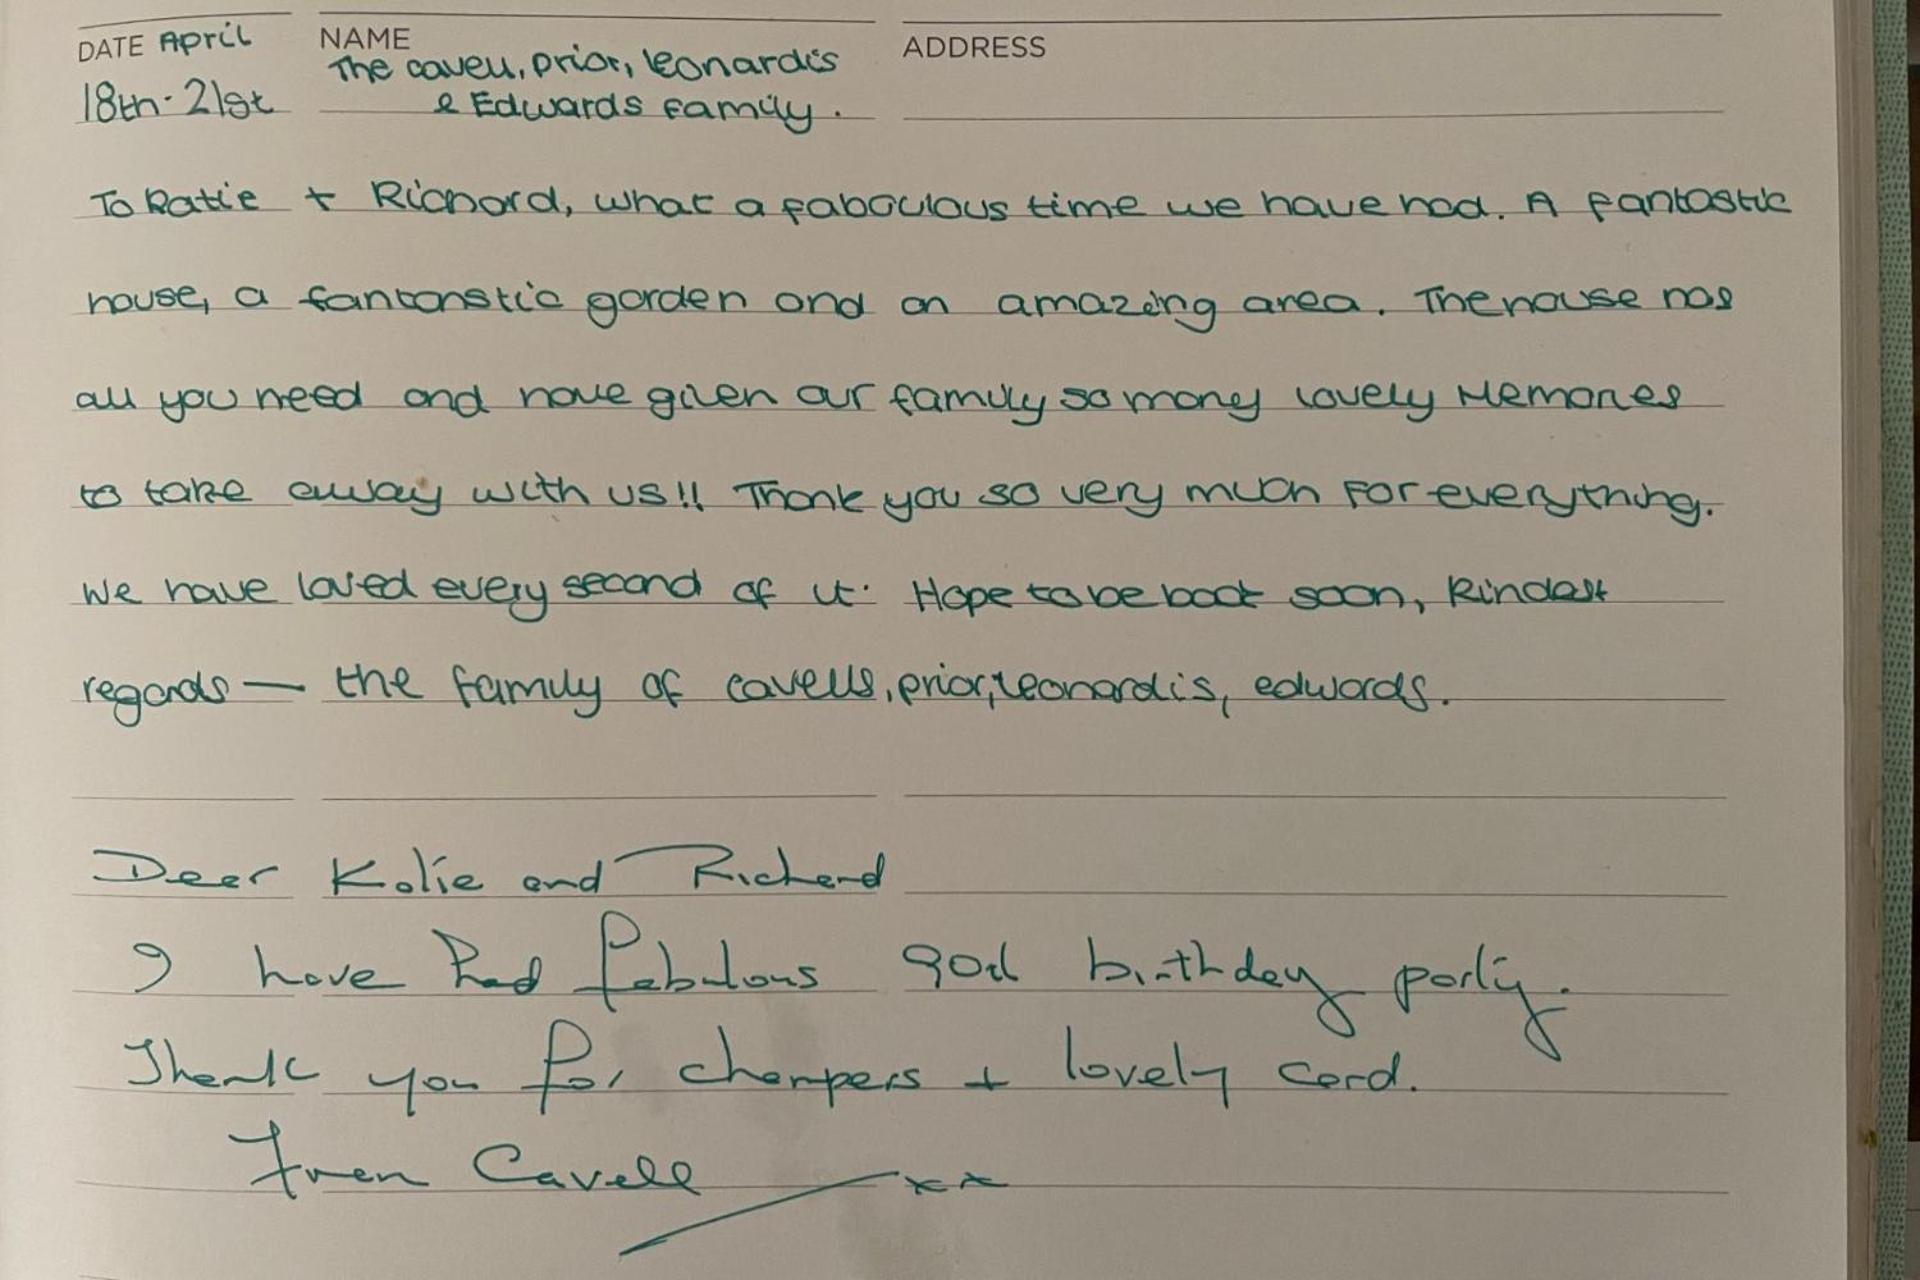 DATE April NAME ADDRESS
The Cavell, prior, leonardis
18th - 21st & Edwards Family.
To Katie + Richard, what a faboulous time we have had. A fantastic
house, a fantanstic garden and an amazing area. The house has
all you need and have given our family so many lovely Memories
to take away with us!! Thank you so very much For everything.
We have loved every second of it. Hope to be back soon, Kindest
regards — the family of cavells, prior, leonardis, edwards.
Dear Katie and Richard
I have had fabulous 90th birthday party.
Thank you for champers + lovely card.
Cavell xx